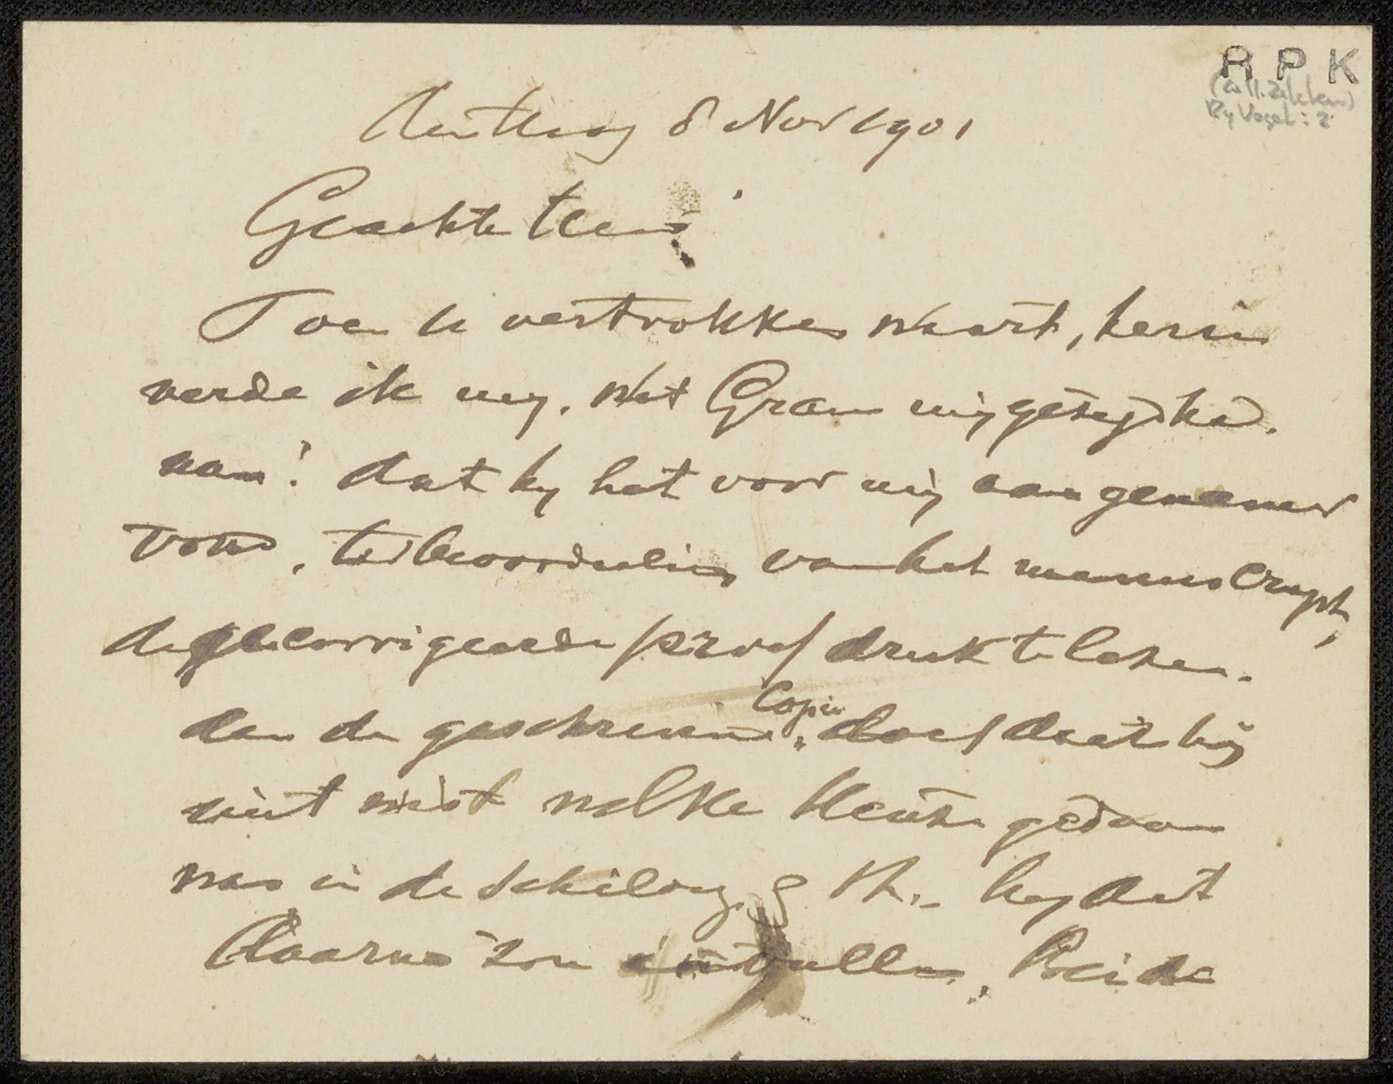 R P K
(coll. Zilcken)
By Vogel: 2
den Haag 8 Nov 1901
Geachte Heer
Toen U vertrokken waart, herin
nerde ik mij, wat Gram mij gezegd had.
nam! dat hij het voor mij aangenamer
vond, ter beoordeeling van het manuscrypt,
de gecorrigeerde proef druk te lezen.
dan de geschreven Copie, doch daar hij
niet wist welke keuze gedaan
was in de schilderij, hij dat
daarna zou invullen, Beide